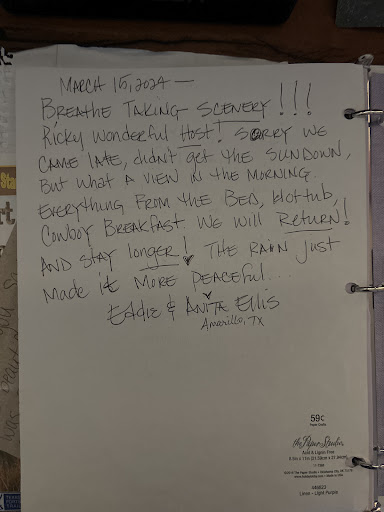 MARCH 15, 2024 —
BREATHE TAKING SCENERY!!!
Ricky Wonderful Host! SORRY WE
CAME LATE, didn't get the SUNDOWN,
But what A VIEW IN the MORNING.
EVERYTHING FROM the BED, Hot tub,
COWBOY BREAKFAST. WE WILL RETURN!
AND STAY longer! THE RAIN Just
MADE it MORE PEACEFUL...
EddIE & ANITA Ellis
AMARillo, TX
59¢
the Paper Studio
Acid & Lignin Free
Linen - Light Purple